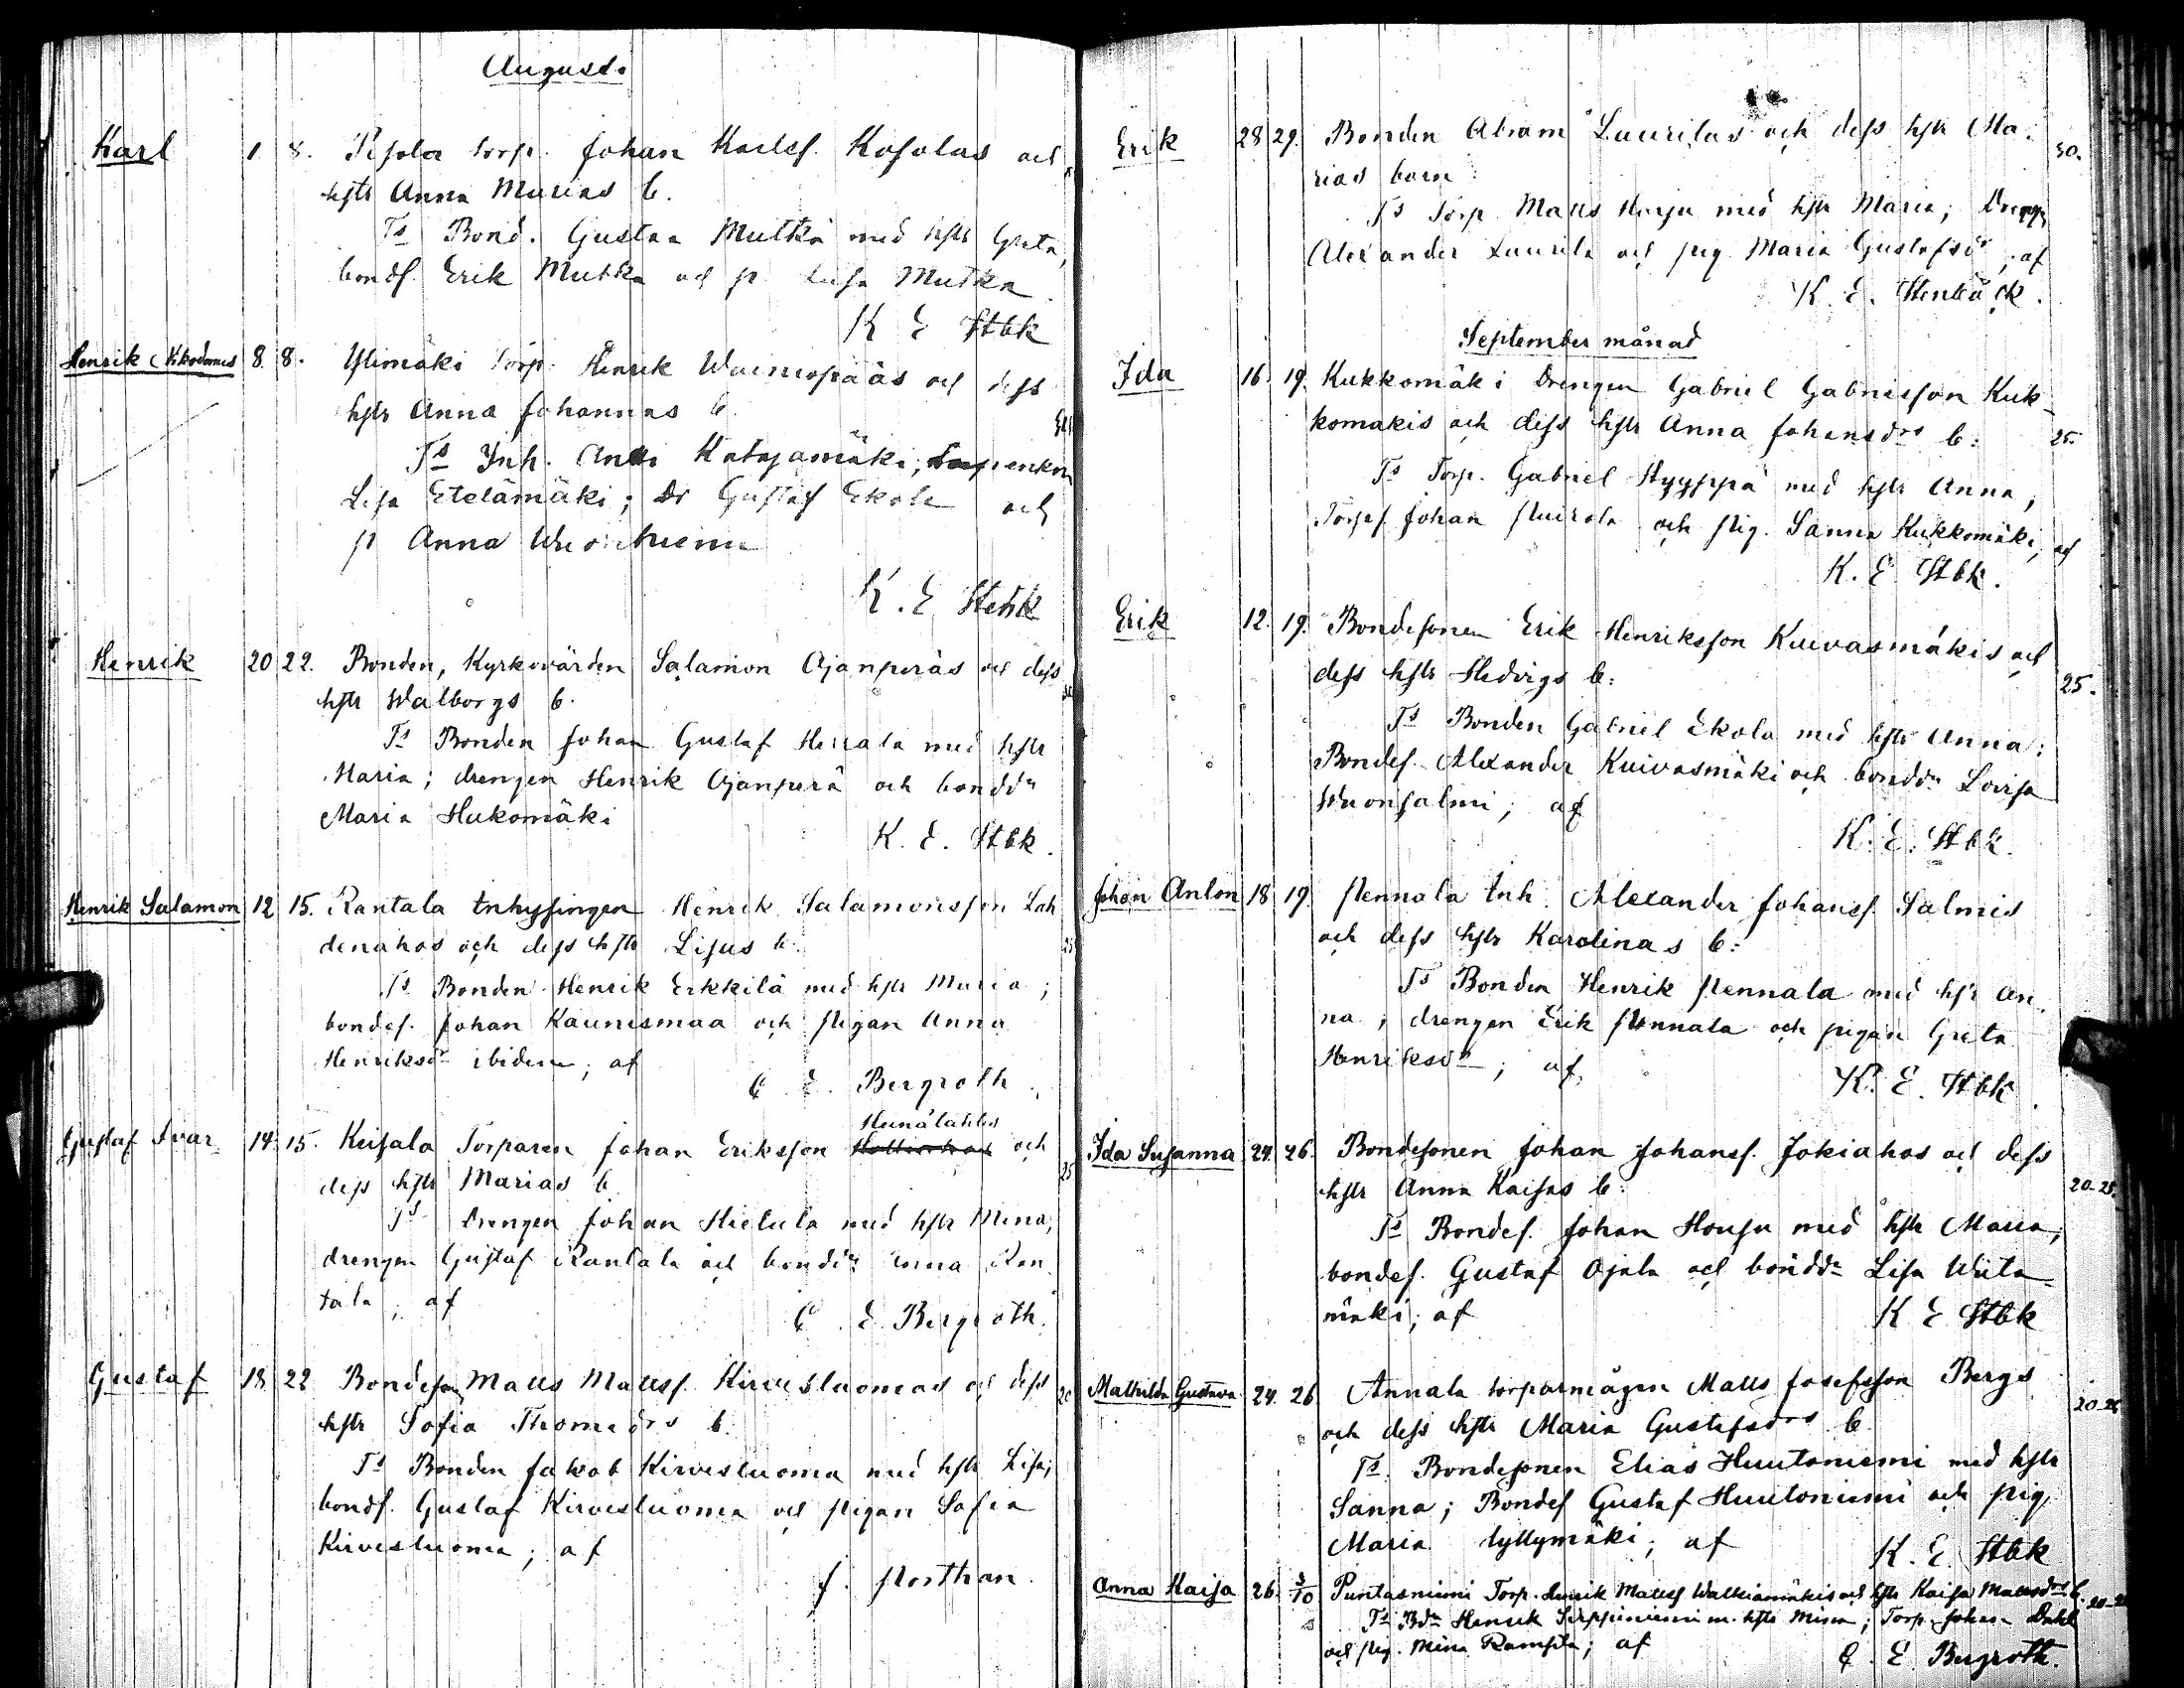 August.
Karl 1. 8. torp. Johan Karlss. Kosolas och
hstr Anna Marias b.
Ts Bond. Gustaa Mutka med hstr Greta,
bonds. Erik Mutka och p. Lisa Mutka
K E Stbk
Henrik Nikodemus 8. 8. Ylimäki torp. Henrik och dess
hstr Anna Johannas b.
Ts Inh. Antti Katajamäki,
Lisa Etelämäki; Dr Gustaf Ekola och
p Anna
K. E Stbk
Henrik 20 22. Bonden, Kyrkovärden Salamon Ojanperäs och dess
hstr Walborgs b.
Ts Bonden Johan Gustaf Herrala med hstr
Maria; drengen Henrik Ojanperä och bonddr
Maria Hukomäki
K. E. Stbk.
Henrik Salamon 12 15. Rantala Inhysingen Henrik Salamonsson Lah
denahos och dess hstr Lisas b. 25
Ts Bonden Henrik Erkkilä med hstr Maria;
bondes. Johan Kaunismaa och pigan Anna
Henriksdr ibidem; af
C E. Bergroth.
Heinälahtis
Gustaf Ivar 14. 15. Keisala Torparen Johan Eriksson och
dess hstr Marias b. 25
Ts Drengen Johan Hietula med hstr Mina;
drengen Gustaf Rantala och bonddr Anna Ran
tala; af
C. E. Bergroth.
Gustaf 18 22 Bondeson Matts Mattss. Kirvesluomas och dess
hstr Sofia Thomasdrs b.
Ts Bonden Jakob Kirvesluoma med hstr Lisa;
bonds. Gustaf Kirvesluoma och pigan Sofia
Kirvesluoma; af
J. Northan.
Erik 28 29. Bonden Abram Laurilas och dess hstr Ma- 30.
rias barn:
Ts Torp. Matts Harju med hstr Maria; Dreng
Alexander Laurila och pig. Maria Gustafsdr; af
K. E. Stenbäck.
September månad
Ida 16. 19. Kukkomäki Drengen Gabriel Gabrielsson Kuk-
komäkis och dess hstr Anna Johansdrs b: 25.
Ts Torp. Gabriel Hyyppä med hstr Anna,
Torps. Johan Puirola och pig. Sanna Kukkomäki, af
K. E. Stbk.
Erik 12. 19. Bondesonen Erik Henriksson Kuivasmäkis och
dess hstr Hedvigs b: 25.
Ts Bonden Gabriel Ekola med hstr Anna;
Bondes. Alexander Kuivasmäki och bonddr Lovisa
Wuonsalmi; af
K. E. Stbk.
Johan Anton 18 19 Pennala Inh. Alexander Johanss. Salmis
och dess hstr Karolinas b:
Ts Bonden Henrik Pennala med hstr An
na; drengen Erik Pennala och pigan Greta
Henriksdr; af
K. E. Stbk
Ida Susanna 24. 26. Bondesonen Johan Johanss. Jokiahos och dess
hstr Anna Kaisas b: 20-25.
Ts Bondes. Johan Houju med hstr Maria;
bondes. Gustaf Ojala och bonddr Lisa Wiita
mäki; af K E Stbk
Mathilda Gustava 24. 26 Annala torparmågen Matts Josefsson Bergs
och dess hstr Maria Gustafsdrs b. 20-25
Ts. Bondesonen Elias Huutoniemi med hstr
Sanna; Bondes Gustaf Huutoniemi och pig.
Maria Lyllymäki; af K. E. Stbk
Anna Kaisa 26. 3/10 Puntasniemi Torp. Henrik Mattss Walkiamäkis och hstr Kaisa Mattsdrs b.
Ts Bdn Henrik m. hstr Mina; Torp. Johan Dahl
och pig. Mina; af C. E. Bergroth.